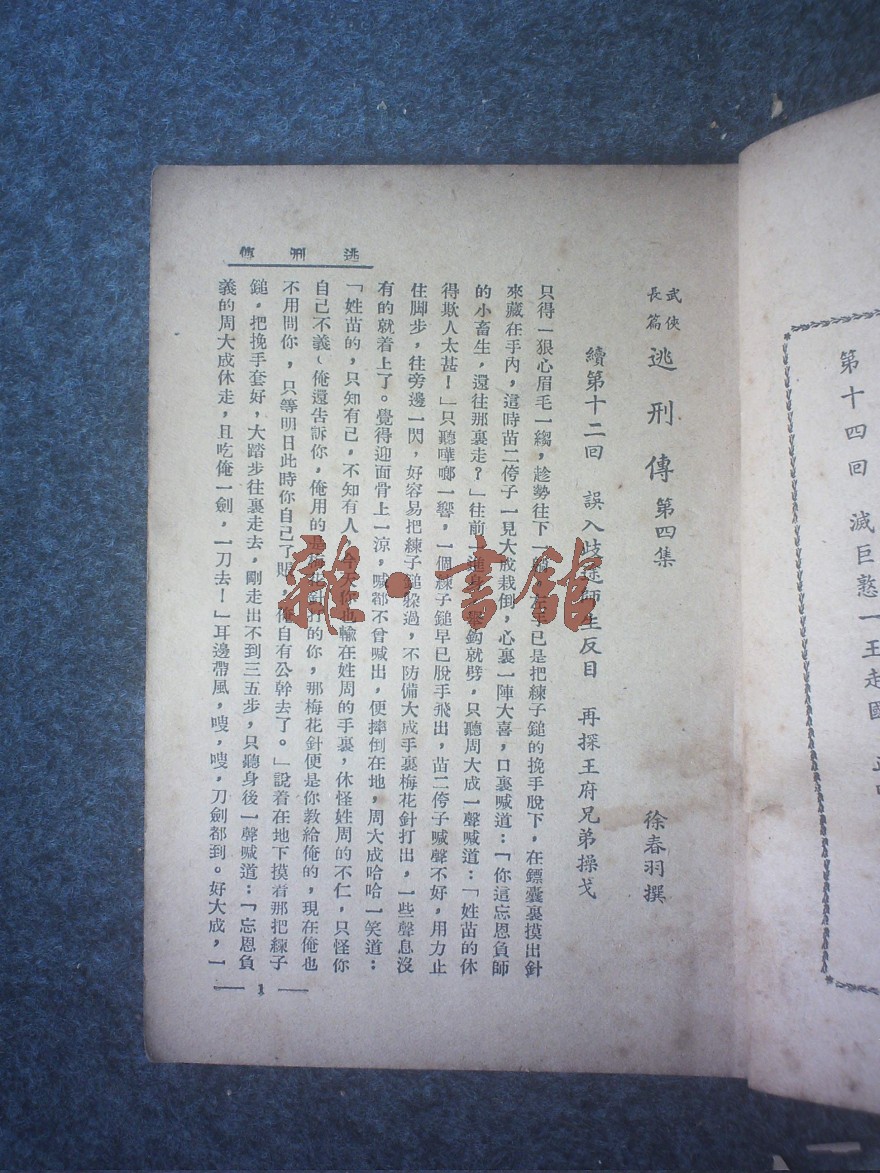 第十四回 滅巨憝一王起國
武俠
長篇
逃刑傳 第四集
徐春羽撰
續第十二回 誤入歧途師生反目 再探王府兄弟操戈
只得一狠心眉毛一縐，趁勢往下一 已是把練子鎚的挽手脫下，在鏢囊裏摸出針
來藏在手內，這時苗二侉子一見大成栽倒，心裏一陣大喜，口裏喊道：「你這忘恩負師
的小畜生，還往那裏走？」往前一進 鈎就劈，只聽周大成一聲喊道：「姓苗的休
得欺人太甚！」只聽嘩啷一響，一個練子鎚早已脫手飛出，苗二侉子喊聲不好，用力止
住脚步，往旁邊一閃，好容易把練子鎚躲過，不防備大成手裏梅花針打出，一些聲息沒
有的就着上了。覺得迎面骨上一涼，喊都不曾喊出，便摔倒在地，周大成哈哈一笑道：
「姓苗的，只知有己，不知有人，今天你也輸在姓周的手裏，休怪姓周的不仁，只怪你
自己不義，俺還告訴你，俺用的是梅花針打的你，那梅花針便是你教給俺的，現在俺也
不用問你，只等明日此時你自己了賬，俺自有公幹去了。」說着在地下摸着那把練子
鎚，把挽手套好，大踏步往裏走去，剛走出不到三五步，只聽身後一聲喊道：「忘恩負
義的周大成休走，且吃俺一劍，一刀去！」耳邊帶風，嗖，嗖，刀劍都到。好大成，一
逃刑傳
— 1 —
雜·書館